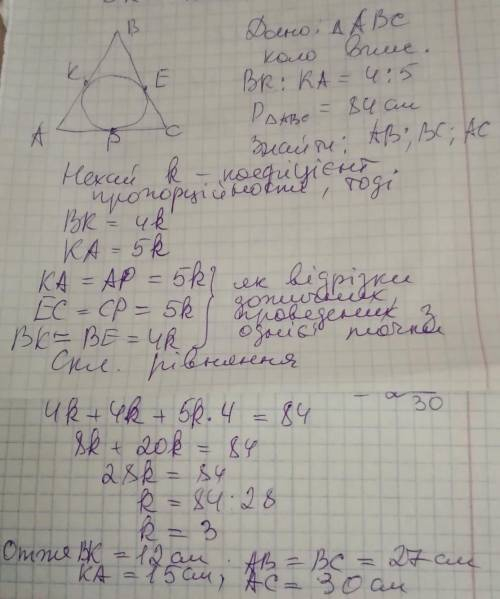 B
K
E
A
P
C
Дано: △ABC
коло впис.
BK : KA = 4 : 5
P△ABC = 84 см
Знайти: AB; BC; AC
Нехай k – коефіцієнт
пропорційності, тоді
BK = 4k
KA = 5k
KA = AP = 5k } як відрізки
EC = CP = 5k дотичних,
проведених з
BK = BE = 4k однієї точки
Скл. рівняння
30
4k + 4k + 5k · 4 = 84
8k + 20k = 84
28k = 84
k = 84 : 28
k = 3
Отже BK = 12 см. AB = BC = 27 см
KA = 15 см, AC = 30 см